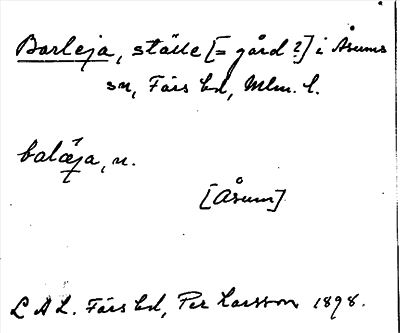 Barleja, ställe [= gård?] i Åsums
sn, Färs hd, Mlm. l.
balæja, n.
[Åsum]
L A L. Färs hd, Per Larsson 1898.